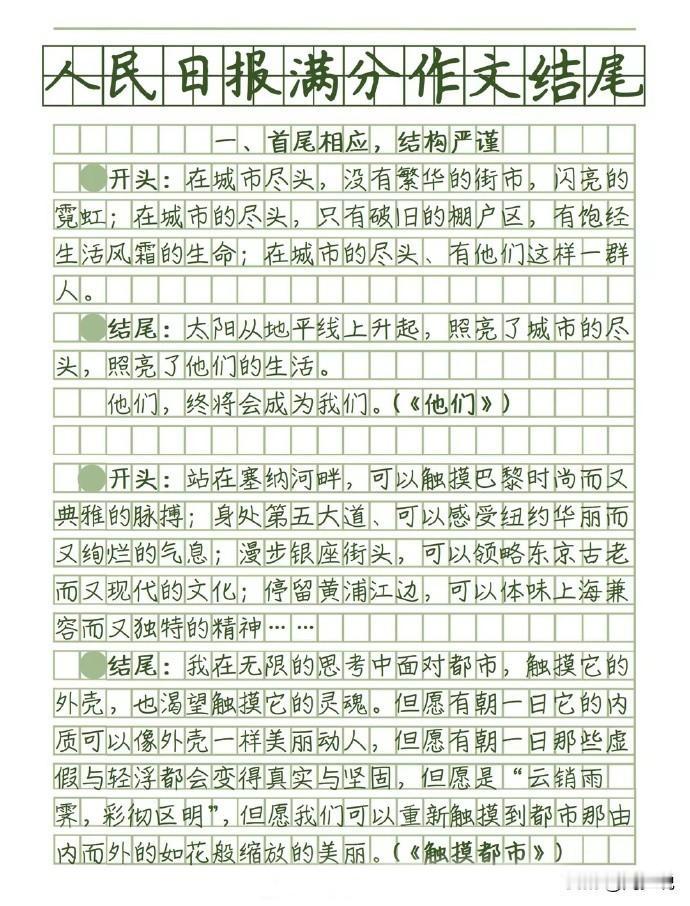 人民日报满分作文结尾
一、首尾相应，结构严谨
开头：在城市尽头，没有繁华的街市，闪亮的
霓虹；在城市的尽头，只有破旧的棚户区，有饱经
生活风霜的生命；在城市的尽头、有他们这样一群
人。
结尾：太阳从地平线上升起，照亮了城市的尽
头，照亮了他们的生活。
他们，终将会成为我们。(《他们》)
开头：站在塞纳河畔，可以触摸巴黎时尚而又
典雅的脉搏；身处第五大道、可以感受纽约华丽而
又绚烂的气息；漫步银座街头，可以领略东京古老
而又现代的文化；停留黄浦江边，可以体味上海兼
容而又独特的精神……
结尾：我在无限的思考中面对都市，触摸它的
外壳，也渴望触摸它的灵魂。但愿有朝一日它的内
质可以像外壳一样美丽动人，但愿有朝一日那些虚
假与轻浮都会变得真实与坚固，但愿是“云销雨
霁，彩彻区明”，但愿我们可以重新触摸到都市那由
内而外的如花般缩放的美丽。(《触摸都市》)